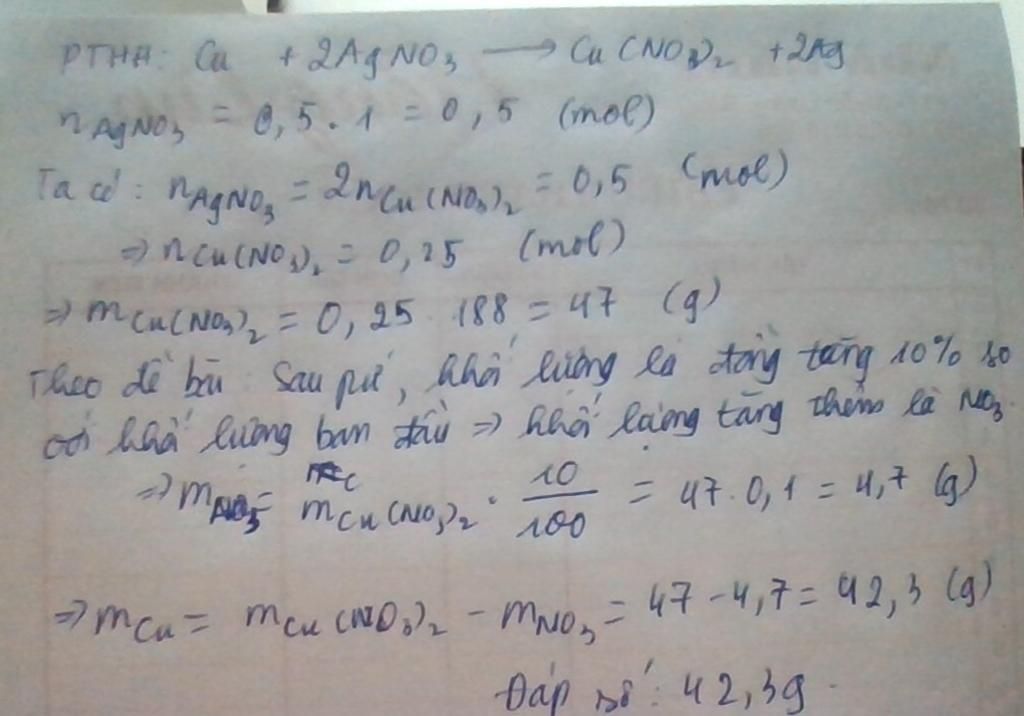 PTHH: Cu + 2AgNO₃ ⟶ Cu(NO₃)₂ + 2Ag
n AgNO₃ = 0,5 . 1 = 0,5 (mol)
Ta có: n AgNO₃ = 2n Cu(NO₃)₂ = 0,5 (mol)
⇒ n Cu(NO₃)₂ = 0,25 (mol)
⇒ m Cu(NO₃)₂ = 0,25 . 188 = 47 (g)
Theo đề bài: Sau pứ, khối lượng lá đồng tăng 10% so
với khối lượng ban đầu ⇒ khối lượng tăng thêm là NO₃
⇒ m NO₃ = m Cu(NO₃)₂ . 10/100 = 47 . 0,1 = 4,7 (g)
⇒ m Cu = m Cu(NO₃)₂ - m NO₃ = 47 - 4,7 = 42,3 (g)
Đáp số: 42,3g.